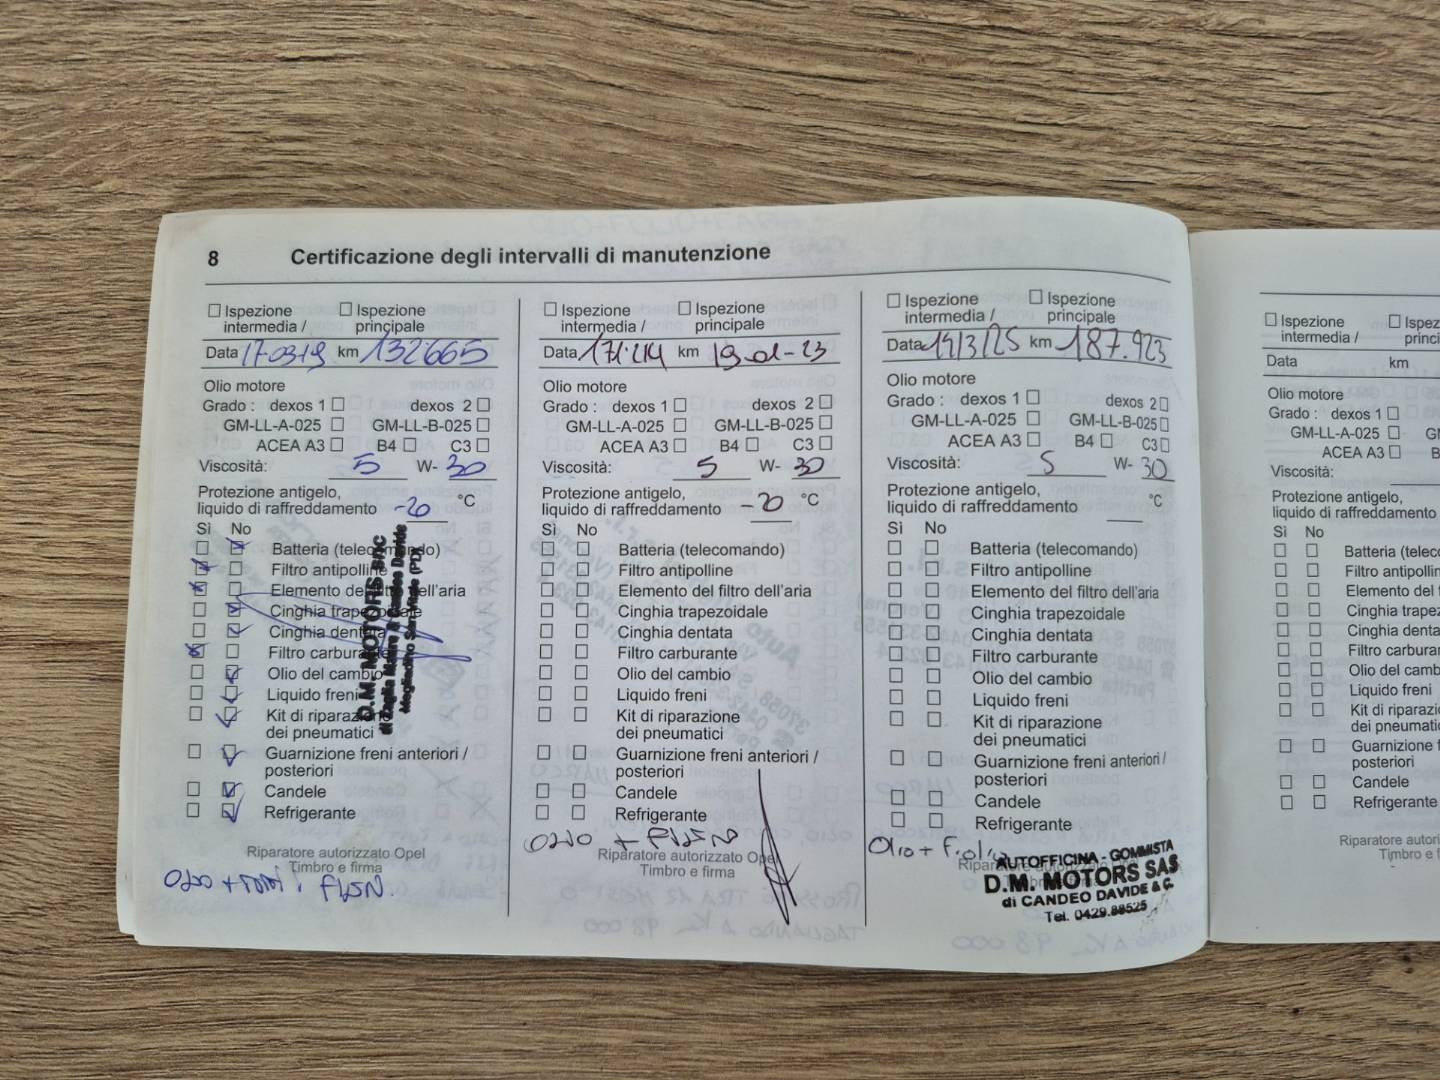 8 Certificazione degli intervalli di manutenzione
Ispezione intermedia / Ispezione principale
Data 17-09-19 km 132665
Olio motore
Grado : dexos 1 dexos 2
GM-LL-A-025 GM-LL-B-025
ACEA A3 B4 C3
Viscosità: 5 W- 30
Protezione antigelo,
liquido di raffreddamento -20 °C
Sì No
Batteria (telecomando)
Filtro antipolline
Elemento del filtro dell'aria
Cinghia trapezoidale
Cinghia dentata
Filtro carburante
Olio del cambio
Liquido freni
Kit di riparazione
dei pneumatici
Guarnizione freni anteriori /
posteriori
Candele
Refrigerante
Riparatore autorizzato Opel
Timbro e firma
D.M. MOTORS SNC
Ispezione intermedia / Ispezione principale
Data 171.214 km 19-01-23
Olio motore
Grado : dexos 1 dexos 2
GM-LL-A-025 GM-LL-B-025
ACEA A3 B4 C3
Viscosità: 5 W- 30
Protezione antigelo,
liquido di raffreddamento -20 °C
Sì No
Batteria (telecomando)
Filtro antipolline
Elemento del filtro dell'aria
Cinghia trapezoidale
Cinghia dentata
Filtro carburante
Olio del cambio
Liquido freni
Kit di riparazione
dei pneumatici
Guarnizione freni anteriori /
posteriori
Candele
Refrigerante
Riparatore autorizzato Opel
Timbro e firma
Ispezione intermedia / Ispezione principale
Data 14/3/25 km 187.923
Olio motore
Grado : dexos 1 dexos 2
GM-LL-A-025 GM-LL-B-025
ACEA A3 B4 C3
Viscosità: 5 W- 30
Protezione antigelo,
liquido di raffreddamento °C
Sì No
Batteria (telecomando)
Filtro antipolline
Elemento del filtro dell'aria
Cinghia trapezoidale
Cinghia dentata
Filtro carburante
Olio del cambio
Liquido freni
Kit di riparazione
dei pneumatici
Guarnizione freni anteriori /
posteriori
Candele
Refrigerante
Olio + F.olio
AUTOFFICINA - GOMMISTA
D.M. MOTORS SAS
di CANDEO DAVIDE & C.
Tel. 0429.88525
Ispezione intermedia /
Data km
Olio motore
Grado : dexos 1
GM-LL-A-025
ACEA A3
Viscosità:
Protezione antigelo,
liquido di raffreddamento
Sì No
Batteria
Filtro
Elemento del
Cinghia
Cinghia
Filtro
Olio del
Liquido freni
Kit di
dei pneumatici
Guarnizione
posteriori
Candele
Refrigerante
Riparatore
Timbro e